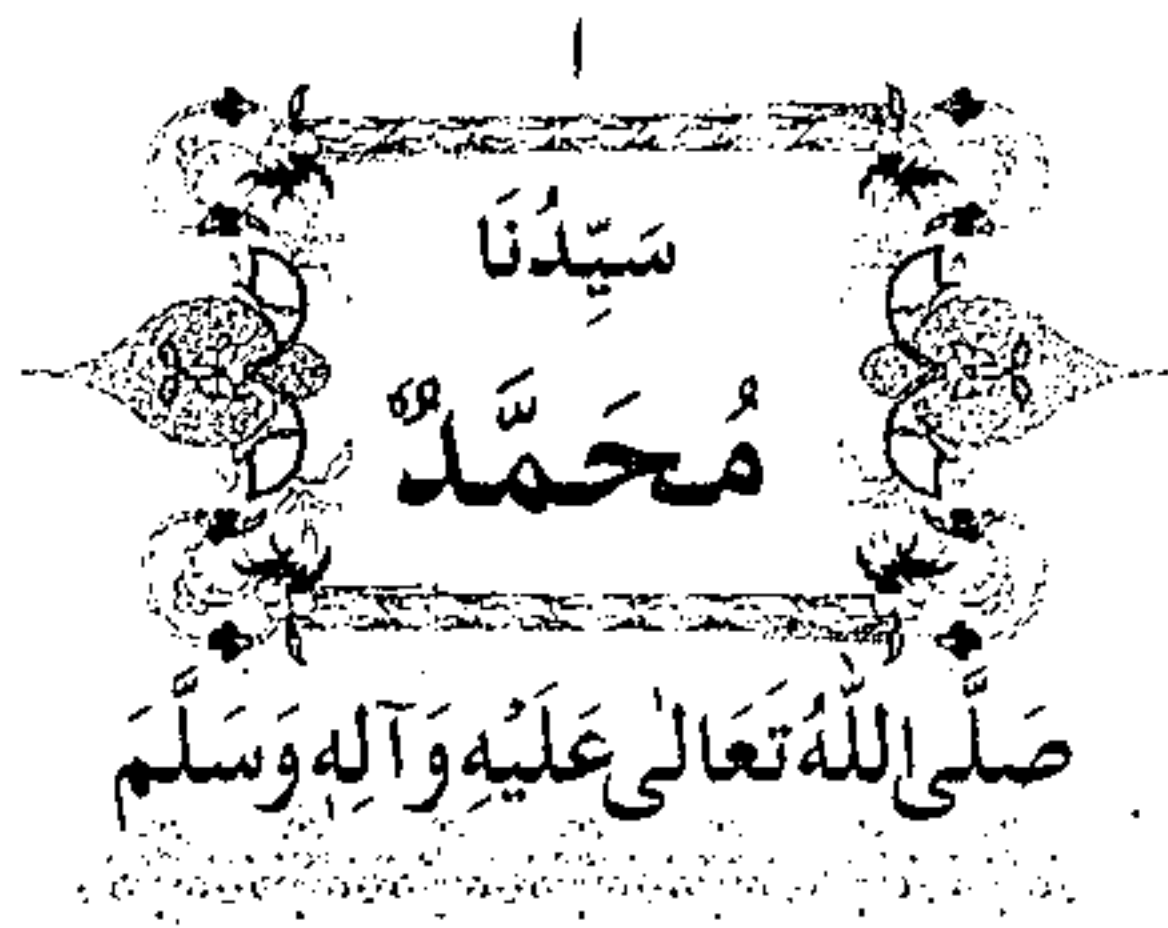 ا
سَيِّدُنَا
مُحَمَّدٌ
صَلَّى اللّٰهُ تَعَالىٰ عَلَيْهِ وَآلِهٖ وَسَلَّمَ